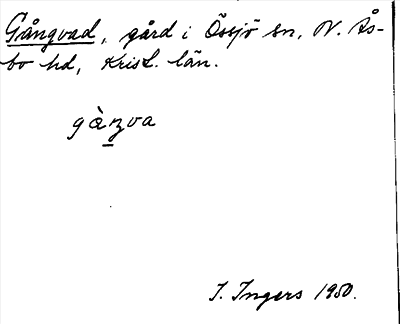 Gångvad, gård i Össjö sn, N. Ås-
bo hd, Krist. län.
gàŋva
I. Ingers 1950.